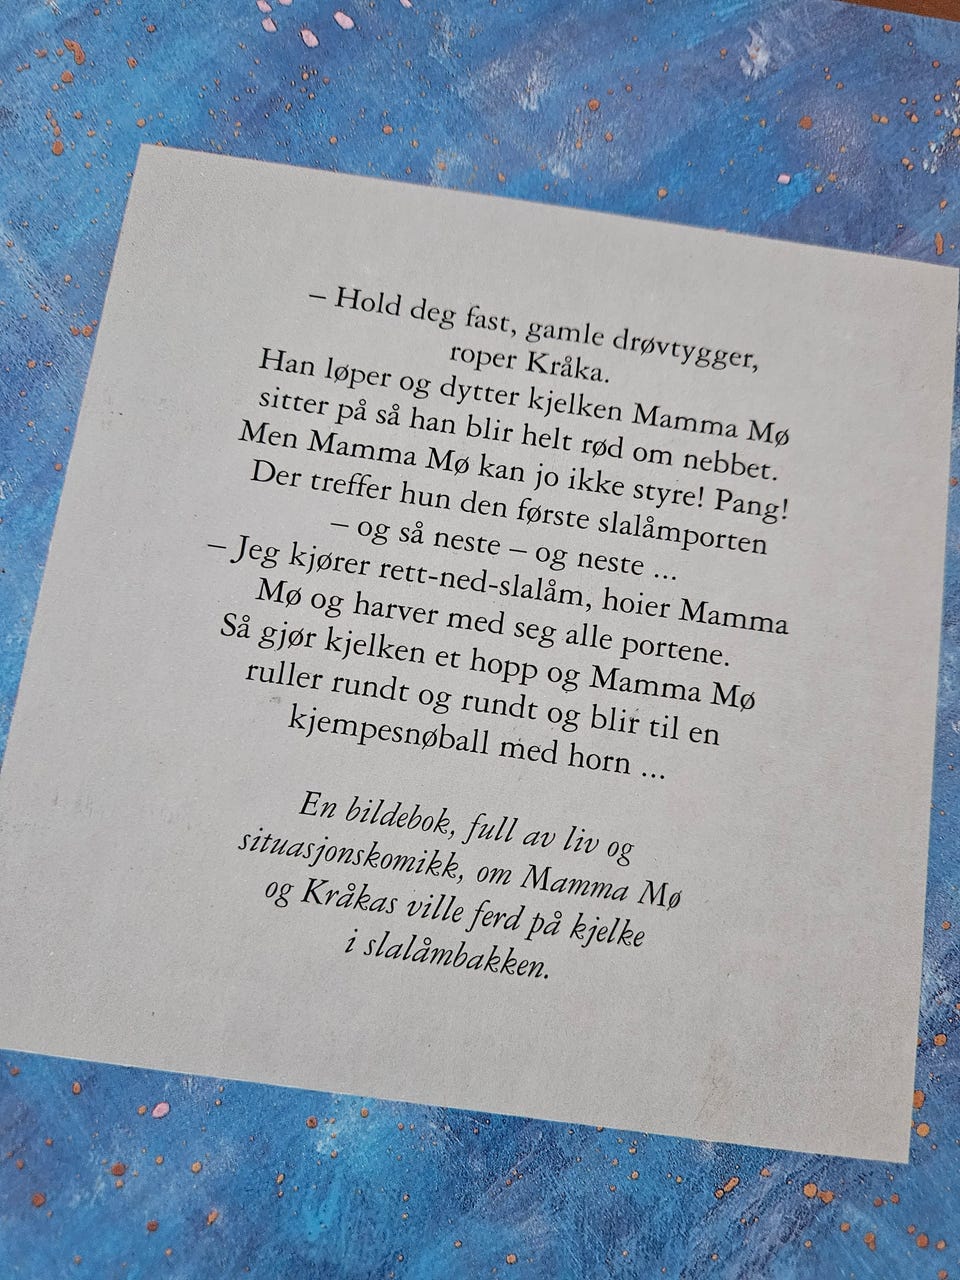 – Hold deg fast, gamle drøvtygger,
roper Kråka.
Han løper og dytter kjelken Mamma Mø
sitter på så han blir helt rød om nebbet.
Men Mamma Mø kan jo ikke styre! Pang!
Der treffer hun den første slalåmporten
– og så neste – og neste ...
– Jeg kjører rett-ned-slalåm, hoier Mamma
Mø og harver med seg alle portene.
Så gjør kjelken et hopp og Mamma Mø
ruller rundt og rundt og blir til en
kjempesnøball med horn ...
En bildebok, full av liv og
situasjonskomikk, om Mamma Mø
og Kråkas ville ferd på kjelke
i slalåmbakken.